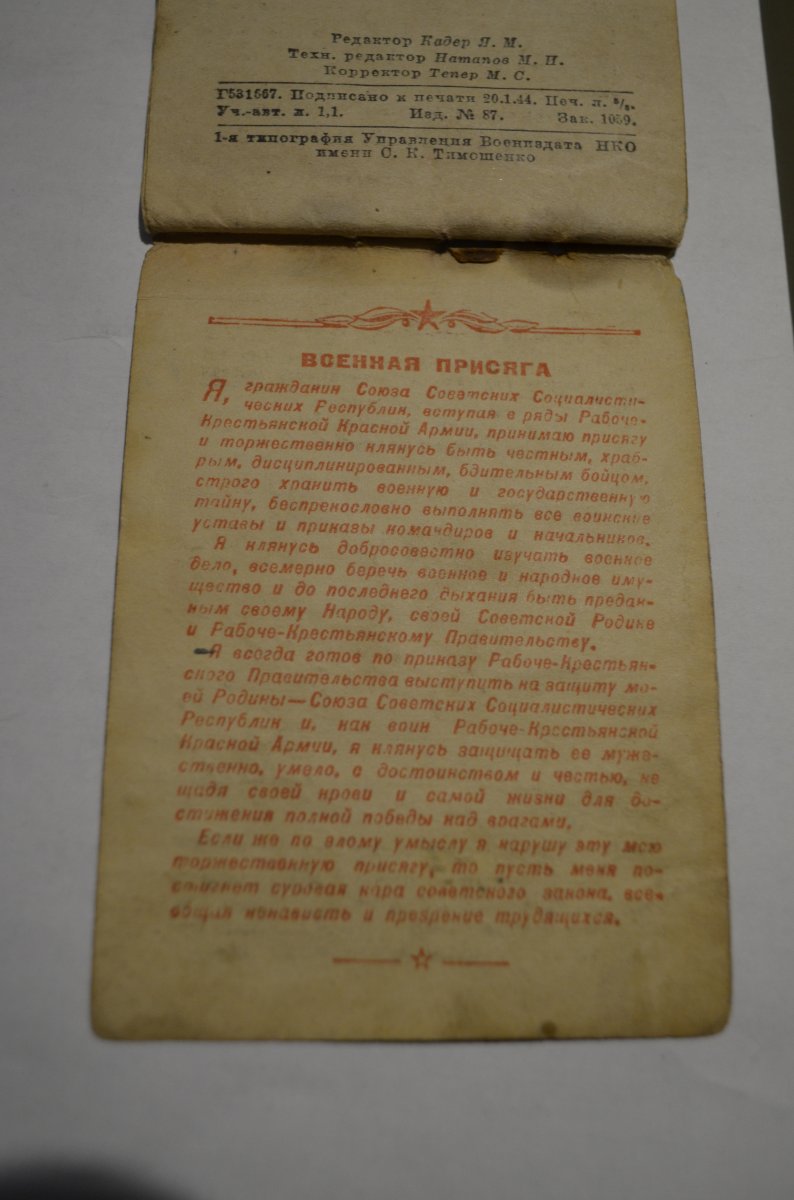 Редактор Кадер Я. М.
Техн. редактор Натапов М. И.
Корректор Тепер М. С.
Г531567. Подписано к печати 20.1.44. Печ. л. ⁵/₈.
Уч.-авт. л. 1,1. Изд. № 87. Зак. 1059.
1-я типография Управления Воениздата НКО
имени С. К. Тимошенко
ВОЕННАЯ ПРИСЯГА
Я, гражданин Союза Советских Социалисти-
ческих Республик, вступая в ряды Рабоче-
Крестьянской Красной Армии, принимаю присягу
и торжественно клянусь быть честным, храб-
рым, дисциплинированным, бдительным бойцом,
строго хранить военную и государственную
тайну, беспрекословно выполнять все воинские
уставы и приказы командиров и начальников.
Я клянусь добросовестно изучать военное
дело, всемерно беречь военное и народное иму-
щество и до последнего дыхания быть предан-
ным своему Народу, своей Советской Родине
и Рабоче-Крестьянскому Правительству.
Я всегда готов по приказу Рабоче-Крестьян-
ского Правительства выступить на защиту мо-
ей Родины—Союза Советских Социалистических
Республик и, как воин Рабоче-Крестьянской
Красной Армии, я клянусь защищать ее муже-
ственно, умело, с достоинством и честью, не
щадя своей крови и самой жизни для до-
стижения полной победы над врагами.
Если же по злому умыслу я нарушу эту мою
торжественную присягу, то пусть меня по-
стигнет суровая кара советского закона, все-
общая ненависть и презрение трудящихся.